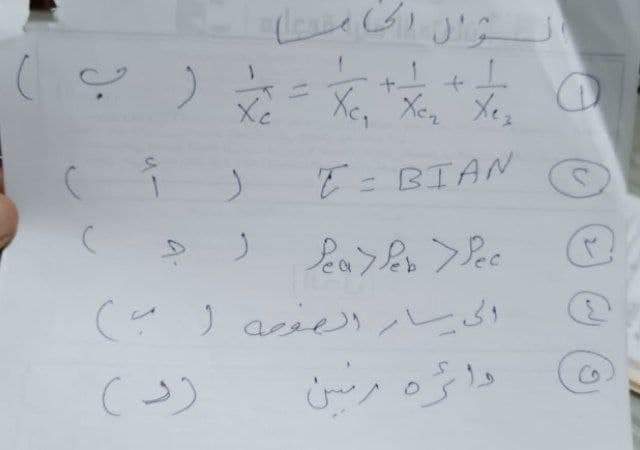 السؤال الخامس
① 1/X꜀ = 1/X꜀₁ + 1/X꜀₂ + 1/X꜀₃ ( ب )
② τ = BIAN ( أ )
③ ρea > ρeb > ρec ( جـ )
④ الى يسار الصفحه ( ب )
⑤ دائره رنين ( د )